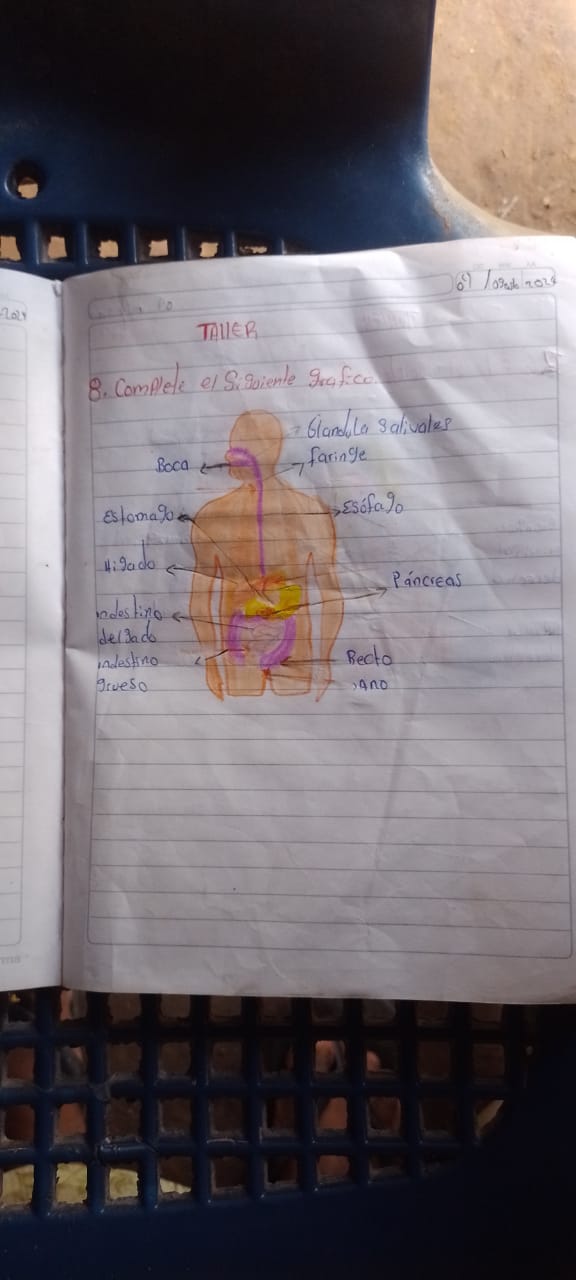 09/agosto 2024
2024
TALLER
8. Complete el Siguiente grafico.
Glandula salivales
Boca
faringe
Estomago
Esófago
Higado
Páncreas
indestino
delgado
indestino
grueso
Recto
Ano